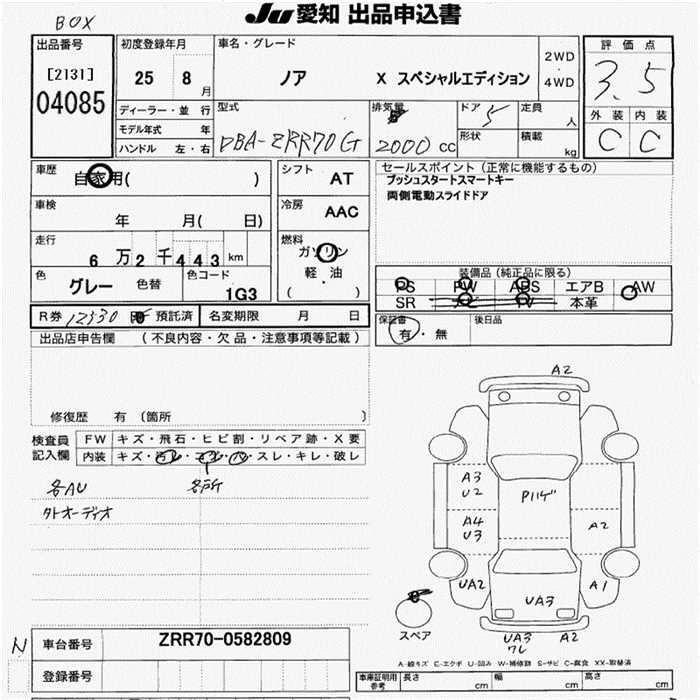 JU愛知 出品申込書
BOX
出品番号 初度登録年月 車名・グレード 2WD 評価点
[2131] 25 8月 ノア X スペシャルエディション 4WD 3.5
04085 ディーラー・並行 型式 排気量 ドア 5 定員 人 外装 内装
モデル年式 年 DBA-ZRR70G 2000cc 形状 積載 kg C C
ハンドル 左・右
車歴 自家用( ) シフト AT セールスポイント(正常に機能するもの)
プッシュスタートスマートキー
両側電動スライドドア
車検 年 月( 日) 冷房 AAC
走行 6万2千443km 燃料 ガソリン
軽・油
( )
色 グレー 色替 色コード 1G3
装備品(純正品に限る)
PS PW ABS エアB AW
SR ナビ TV 本革
R券 12530 預託済 名変期限 月 日 保証書 有・無 後日品
出品店申告欄 (不良内容・欠品・注意事項等記載)
修復歴 有 (箇所 )
検査員 FW キズ・飛石・ヒビ割・リペア跡・X要
記入欄 内装 キズ・汚レ・コゲ・穴・スレ・キレ・破レ
各AU 各所
外オーディオ
A2
A3
U2
A4
U3
A2
UA2
A1
UA3
スペア
UA3 A2
ワレ
A・線キズ E・エクボ U・凹み W・補修跡 S・サビ C・腐食 XX・取替済
N 車台番号 ZRR70-0582809
登録番号
車庫証明用参考 長さ cm 幅 cm 高さ cm